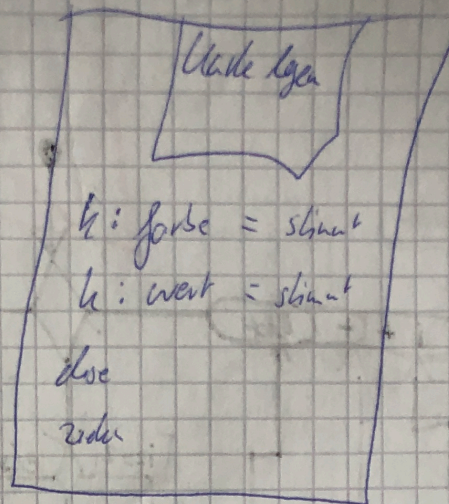 Karte legen
k: farbe = stimmt
k: wert = stimmt
else
ziehen